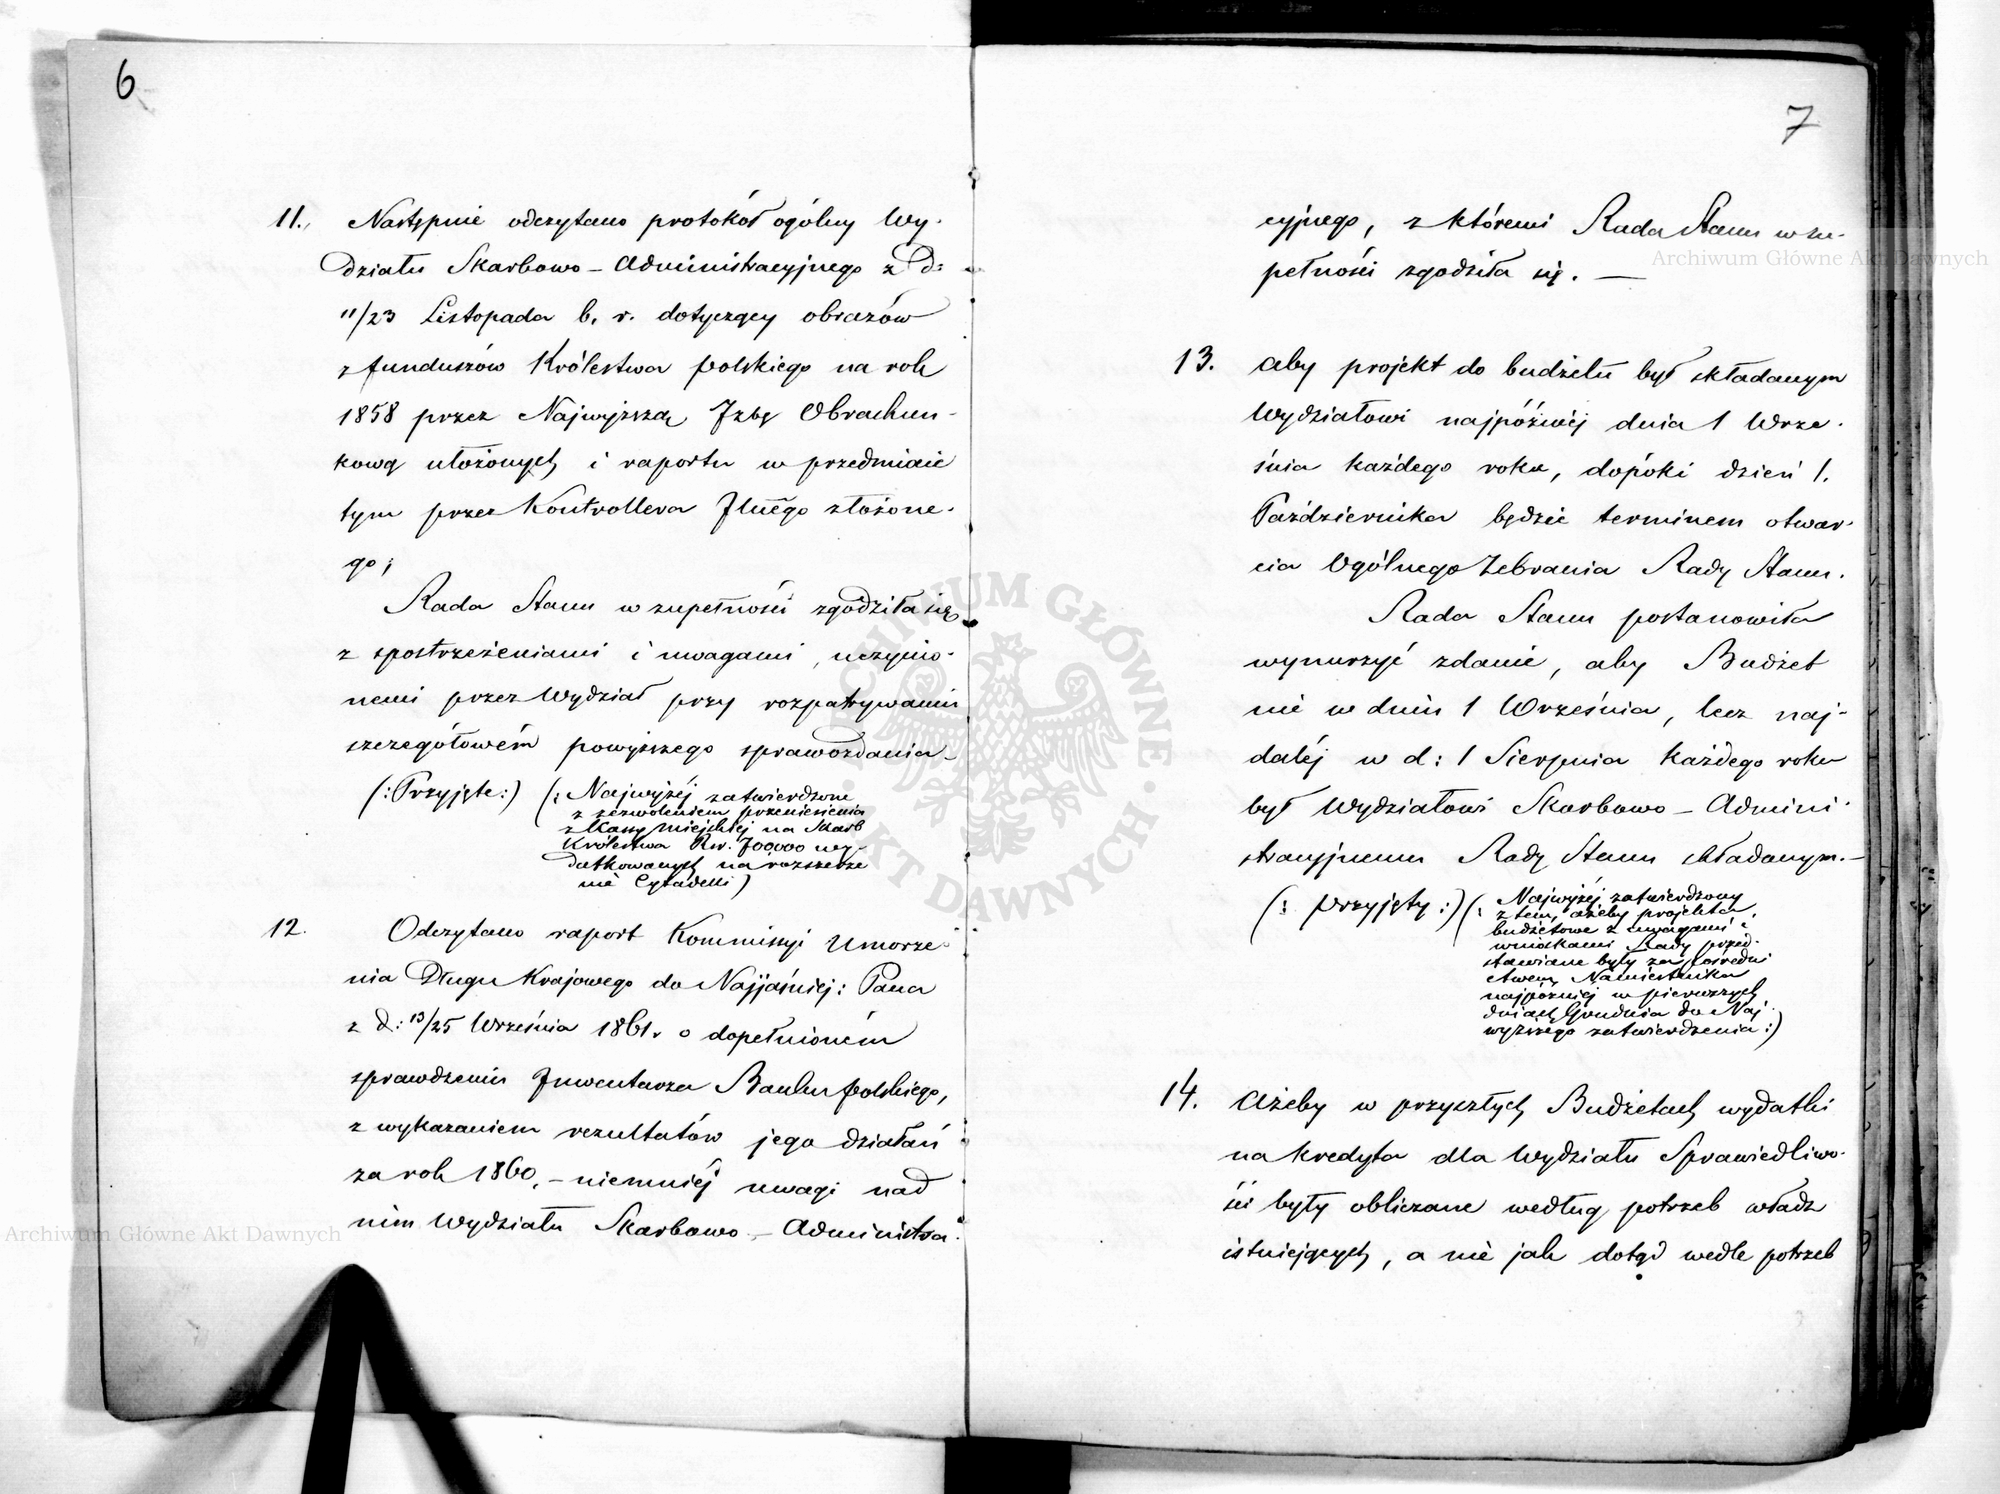 6
11., Następnie odczytano protokół ogólny Wy-
działu Skarbowo-Administracyjnego z d:
11/23 Listopada b. r. dotyczący obrazów
z funduszów Królestwa Polskiego na rok
1858 przez Najwyższą Izbę Obrachun-
kową ułożonych i raportu w przedmiocie
tym przez Kontrollera Jlnego złożone-
go;
Rada Stanu w zupełności zgodziła się
z spostrzeżeniami i uwagami, uczynio-
nemi przez Wydział przy rozpatrywaniu
szczegółowém powyższego sprawozdania-
(:Przyjęte:) (: Najwyżéj zatwierdzone
z zezwoleniem przeniesienia
z Kassy miejskiej na Skarb
Królestwa Rsr. 700000 wy-
datkowanych na rozszerze
nie Cytadelli)
12. Odczytano raport Kommissyi Umorze-
nia Długu Krajowego do Najjaśniej: Pana
z d: 13/25 Września 1861 r. o dopełnioném
sprawdzeniu Inwentarza Banku Polskiego,
z wykazaniem rezultatów jego działań
za rok 1860, - niemniéj uwagi nad
nim Wydziału Skarbowo-Administra-
7
cyjnego, z któremi Rada Stanu w zu-
pełności zgodziła się. —
13. Aby projekt do budżetu był składanym
Wydziałowi najpóźniéj dnia 1 Wrze-
śnia każdego roku, dopóki dzień 1.
Października będzie terminem otwar-
cia Ogólnego Zebrania Rady Stanu.
Rada Stanu postanowiła
wynurzyć zdanie, aby Budżet
nie w dniu 1 Września, lecz naj-
daléj w d: 1 Sierpnia każdego roku
był Wydziałowi Skarbowo-Admini-
stracyjnemu Rady Stanu składanym.-
(: Przyjęty :) (: Najwyżéj zatwierdzony
z tem, ażeby projekta
budżetowe z uwagami i
wnioskami Rady przed-
stawiane były za pośredni
ctwem Namiestnika
najpóźniej w pierwszych
dniach Grudnia do Naj-
wyższego zatwierdzenia :)
14. Ażeby w przyszłych Budżetach wydatki
na kredyta dla Wydziału Sprawiedliwo-
ści były obliczane według potrzeb władz
istniejących, a nie jak dotąd wedle potrzeb
ARCHIWUM GŁÓWNE AKT DAWNYCH
Archiwum Główne Akt Dawnych
Archiwum Główne Akt Dawnych